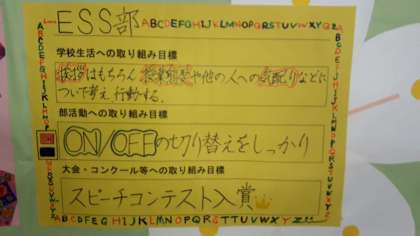 ESS部
ABCDEFGHIJKLMNOPQRSTUVWXYZ
学校生活への取り組み目標
挨拶はもちろん 授業態度や他の人への気配りなどに
ついて考え、行動する。
部活動への取り組み目標
ON/OFFの切り替えをしっかり
大会・コンクール等への取り組み目標
スピーチコンテスト入賞